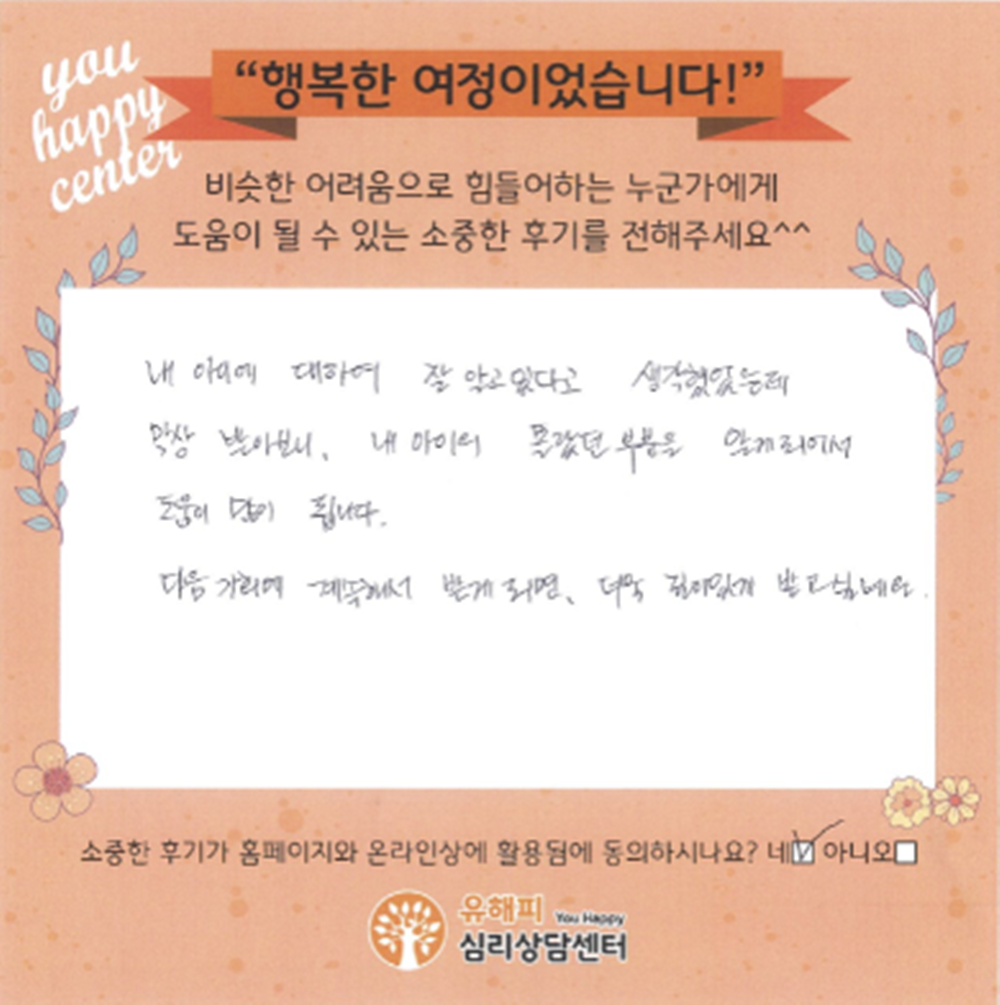 you
happy
center
“행복한 여정이었습니다!”
비슷한 어려움으로 힘들어하는 누군가에게
도움이 될 수 있는 소중한 후기를 전해주세요^^
내 아이에 대하여 잘 알고있다고 생각했었는데
막상 받아보니, 내 아이의 몰랐던 부분을 알게되어서
도움이 많이 됩니다.
다음 기회에 계속해서 받게되면, 더욱 깊이있게 받고싶네요.
소중한 후기가 홈페이지와 온라인상에 활용됨에 동의하시나요? 네 아니오
유해피 You Happy
심리상담센터